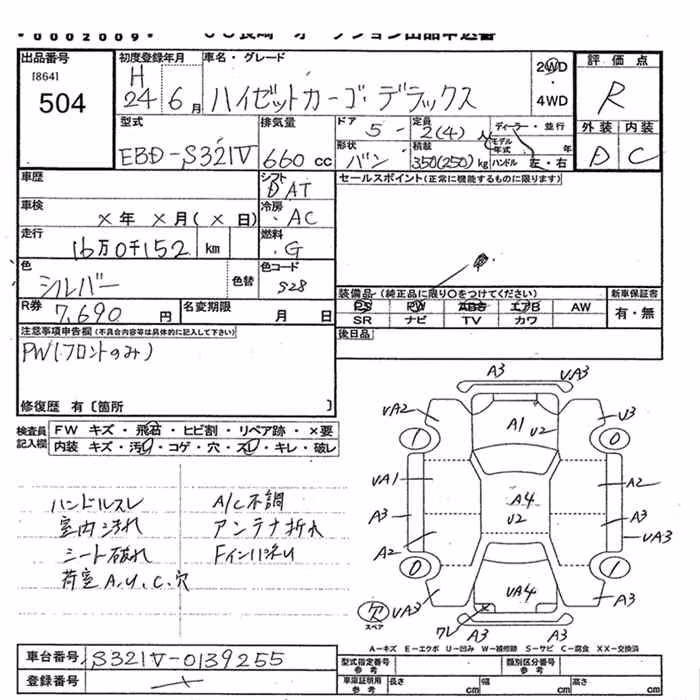 *0002009*
出品番号
[864]
504
初度登録年月
H
24 6月
車名・グレード
ハイゼットカーゴ・デラックス
2WD
・
4WD
評価点
R
外装 内装
D C
型式
EBD-S321V
排気量
660 cc
ドア
5
定員
2(4)
人
形状
バン
積載
350(250)kg
ディーラー・並行
モデル年式 年
ハンドル 左・右
車歴
車検
×年 ×月(×日)
走行
16万0千152 km
色
シルバー
色替
シフト
DAT
冷房
AC
燃料
G
色コード
S28
セールスポイント(正常に機能するものに限ります)
R券
7,690 円
名変期限
月 日
装備品(純正品に限り〇をつけてください)
PS PW ABS エアB AW
SR ナビ TV カワ
新車保証書
有・無
後日品
注意事項申告欄(不具合内容等は具体的に記入して下さい)
PW(フロントのみ)
修復歴 有〔箇所 〕
検査員記入欄
FW キズ・飛石・ヒビ割・リペア跡・×要
内装 キズ・汚レ・コゲ・穴・スレ・キレ・破レ
ハンドルスレ
室内汚れ
シート破れ
荷室A,U,C,穴
A/C不調
アンテナ折れ
A3
UA3
UA2
U3
A1
U2
1
0
UA1
A2
A4
U2
A3
A3
UA3
A2
0
1
欠
スペア
UA3
UA4
ワレ
A3
A3
A3
A-キズ E-エクボ U-凹み W-補修跡 S-サビ C-腐食 XX-交換済
車台番号
S321V-0139255
登録番号
型式指定番号
参考
類別区分番号
参考
車庫証明用
参考
長さ cm
幅 cm
高さ cm